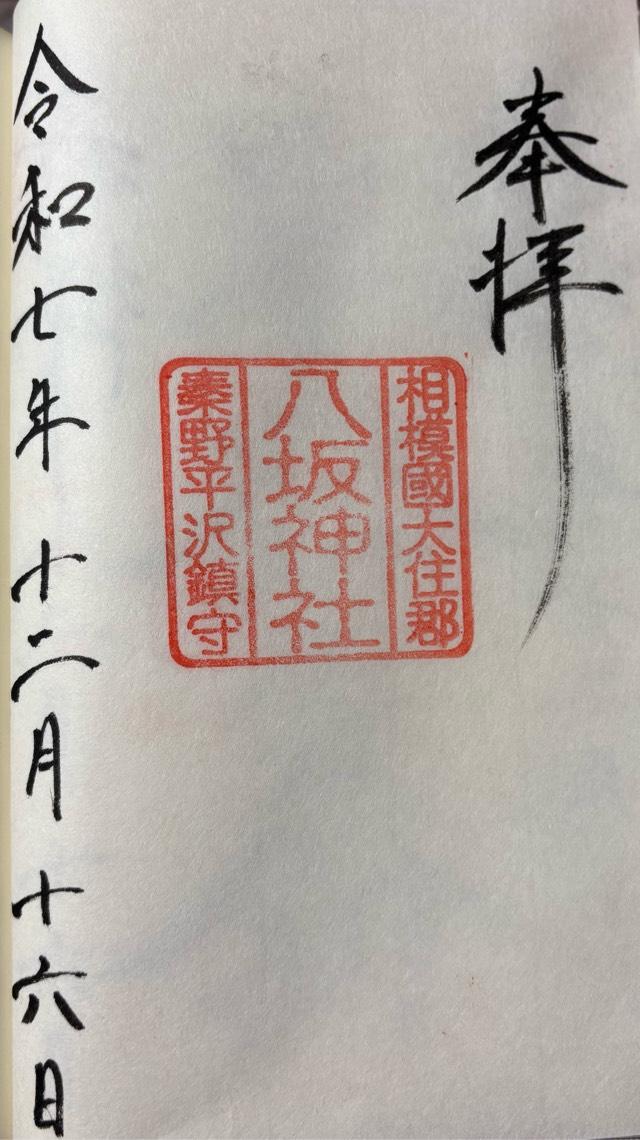 奉拝
相模國大住郡
八坂神社
秦野平沢鎮守
令和七年十二月十六日